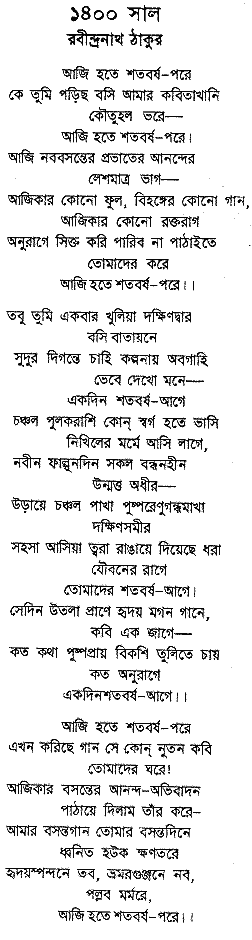 ১৪০০ সাল
রবীন্দ্রনাথ ঠাকুর
আজি হতে শতবর্ষ-পরে
কে তুমি পড়িছ বসি আমার কবিতাখানি
কৌতূহল ভরে—
আজি হতে শতবর্ষ-পরে।
আজি নববসন্তের প্রভাতের আনন্দের
লেশমাত্র ভাগ—
আজিকার কোনো ফুল, বিহঙ্গের কোনো গান,
আজিকার কোনো রক্তরাগ
অনুরাগে সিক্ত করি পারিব না পাঠাইতে
তোমাদের করে
আজি হতে শতবর্ষ-পরে।।
তবু তুমি একবার খুলিয়া দক্ষিণদ্বার
বসি বাতায়নে
সুদূর দিগন্তে চাহি কল্পনায় অবগাহি
ভেবে দেখো মনে—
একদিন শতবর্ষ-আগে
চঞ্চল পুলকরাশি কোন্ স্বর্গ হতে ভাসি
নিখিলের মর্মে আসি লাগে,
নবীন ফাল্গুনদিন সকল বন্ধনহীন
উন্মত্ত অধীর—
উড়ায়ে চঞ্চল পাখা পুষ্পরেণুগন্ধমাখা
দক্ষিণসমীর
সহসা আসিয়া ত্বরা রাঙায়ে দিয়েছে ধরা
যৌবনের রাগে
তোমাদের শতবর্ষ-আগে।
সেদিন উতলা প্রাণে হৃদয় মগন গানে,
কবি এক জাগে—
কত কথা পুষ্পপ্রায় বিকশি তুলিতে চায়
কত অনুরাগে
একদিনশতবর্ষ-আগে।।
আজি হতে শতবর্ষ-পরে
এখন করিছে গান সে কোন্ নুতন কবি
তোমাদের ঘরে!
আজিকার বসন্তের আনন্দ-অভিবাদন
পাঠায়ে দিলাম তাঁর করে–
আমার বসন্তগান তোমার বসন্তদিনে
ধ্বনিত হউক ক্ষণতরে
হৃদয়স্পন্দনে তব, ভ্রমরগুঞ্জনে নব,
পল্লব মর্মরে,
আজি হতে শতবর্ষ-পরে।।